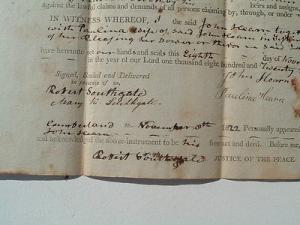 against the lawful claims and demands of all persons claiming by, through, or under
heirs and assigns
IN WITNESS WHEREOF, I the said John Hearn
with Paulina wife of said John Hearn in
of her Releasing her Dower or thirds in said
have hereunto set our hand and seals this Eighth day of Nov
in the year of our Lord one thousand eight hundred and Twenty
Signed, Sealed and Delivered
in presence of us,
John Hearn
Robert Southgate
Paulina Hearn
Mary K. Southgate
Cumberland ss November 8th 1822 Personally appeared
John Hearn
and acknowledged the above instrument to be his free act and deed. Before me,
Robert Southgate JUSTICE OF THE PEACE